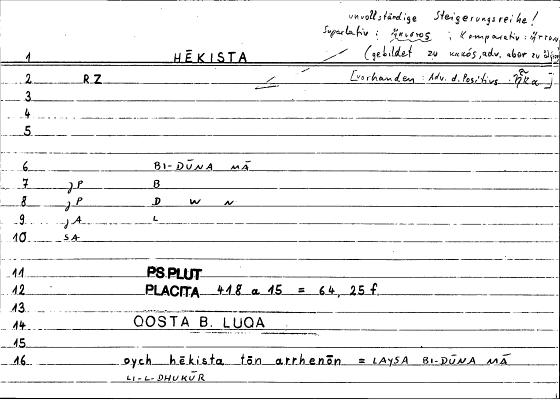 unvollständige Steigerungsreihe!
Superlativ: ἥκιστος ; Komparativ: ἥττων
(gebildet zu κακός, adv. aber zu
1 HĒKISTA
2 R.Z [vorhanden: Adv. d. Positivus ἦκα]
3
4
5
6 BI-DŪNA MĀ
7 jP B
8 jP D W N
9 jA L
10 SA
11 PS PLUT
12 PLACITA 418 a 15 = 64, 25 f.
13
14 QOSTA B. LUQA
15
16 oych hēkista tōn arrhenōn = LAYSA BI-DŪNA MĀ
LI-L-DHUKŪR